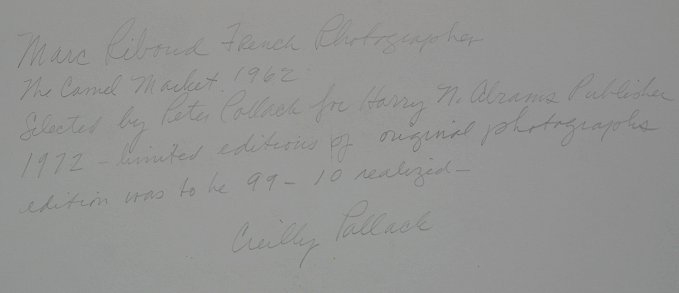 Marc Riboud French Photographer
The Camel Market. 1962
Selected by Peter Pollack for Harry N. Abrams Publisher
1972 - limited editions of original photographs
edition was to be 99 - 10 realized -
Pollack